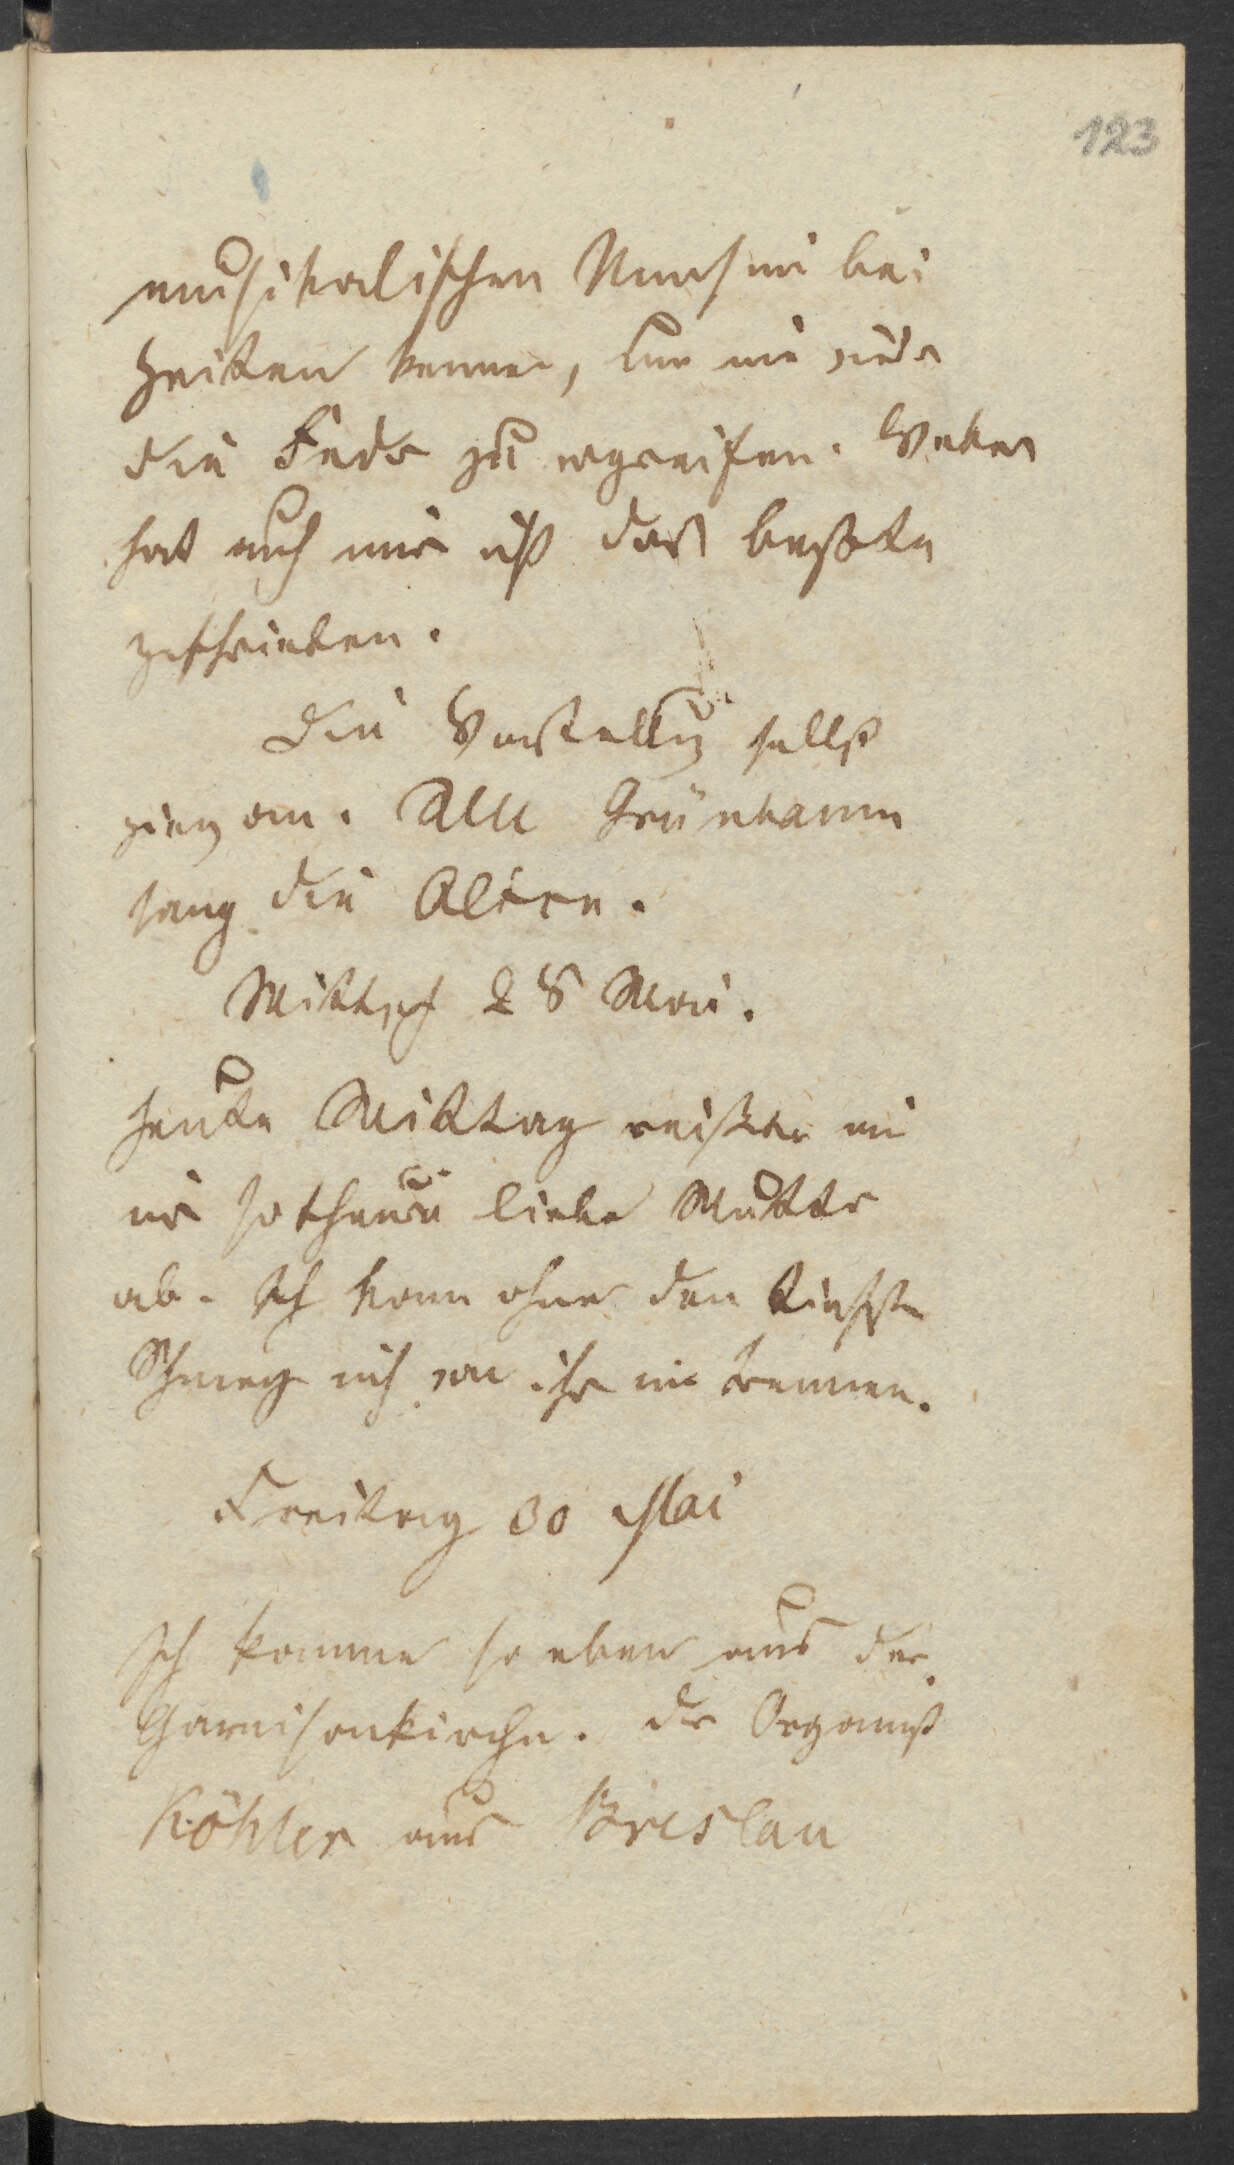 123
musikalischen Unsinn bei
Zeiten kenne, um nie wieder
die Feder zu ergreifen. Weber
hat auch nur nicht das beste
geschrieben.
Die Vorstellung selbst
ging an. Alle Grünbaum
sang die Alteen.
Mittwoch 28 Mai.
Heute Mittag reiste
liebe Mutter
ab. Ich kann ohne den tiefsten
Schmerz mich von ihr nie trennen.
Freitag 30 Mai
Ich komme so eben aus der
Garnisonkirche. Der Organist
Köhler aus Breslau